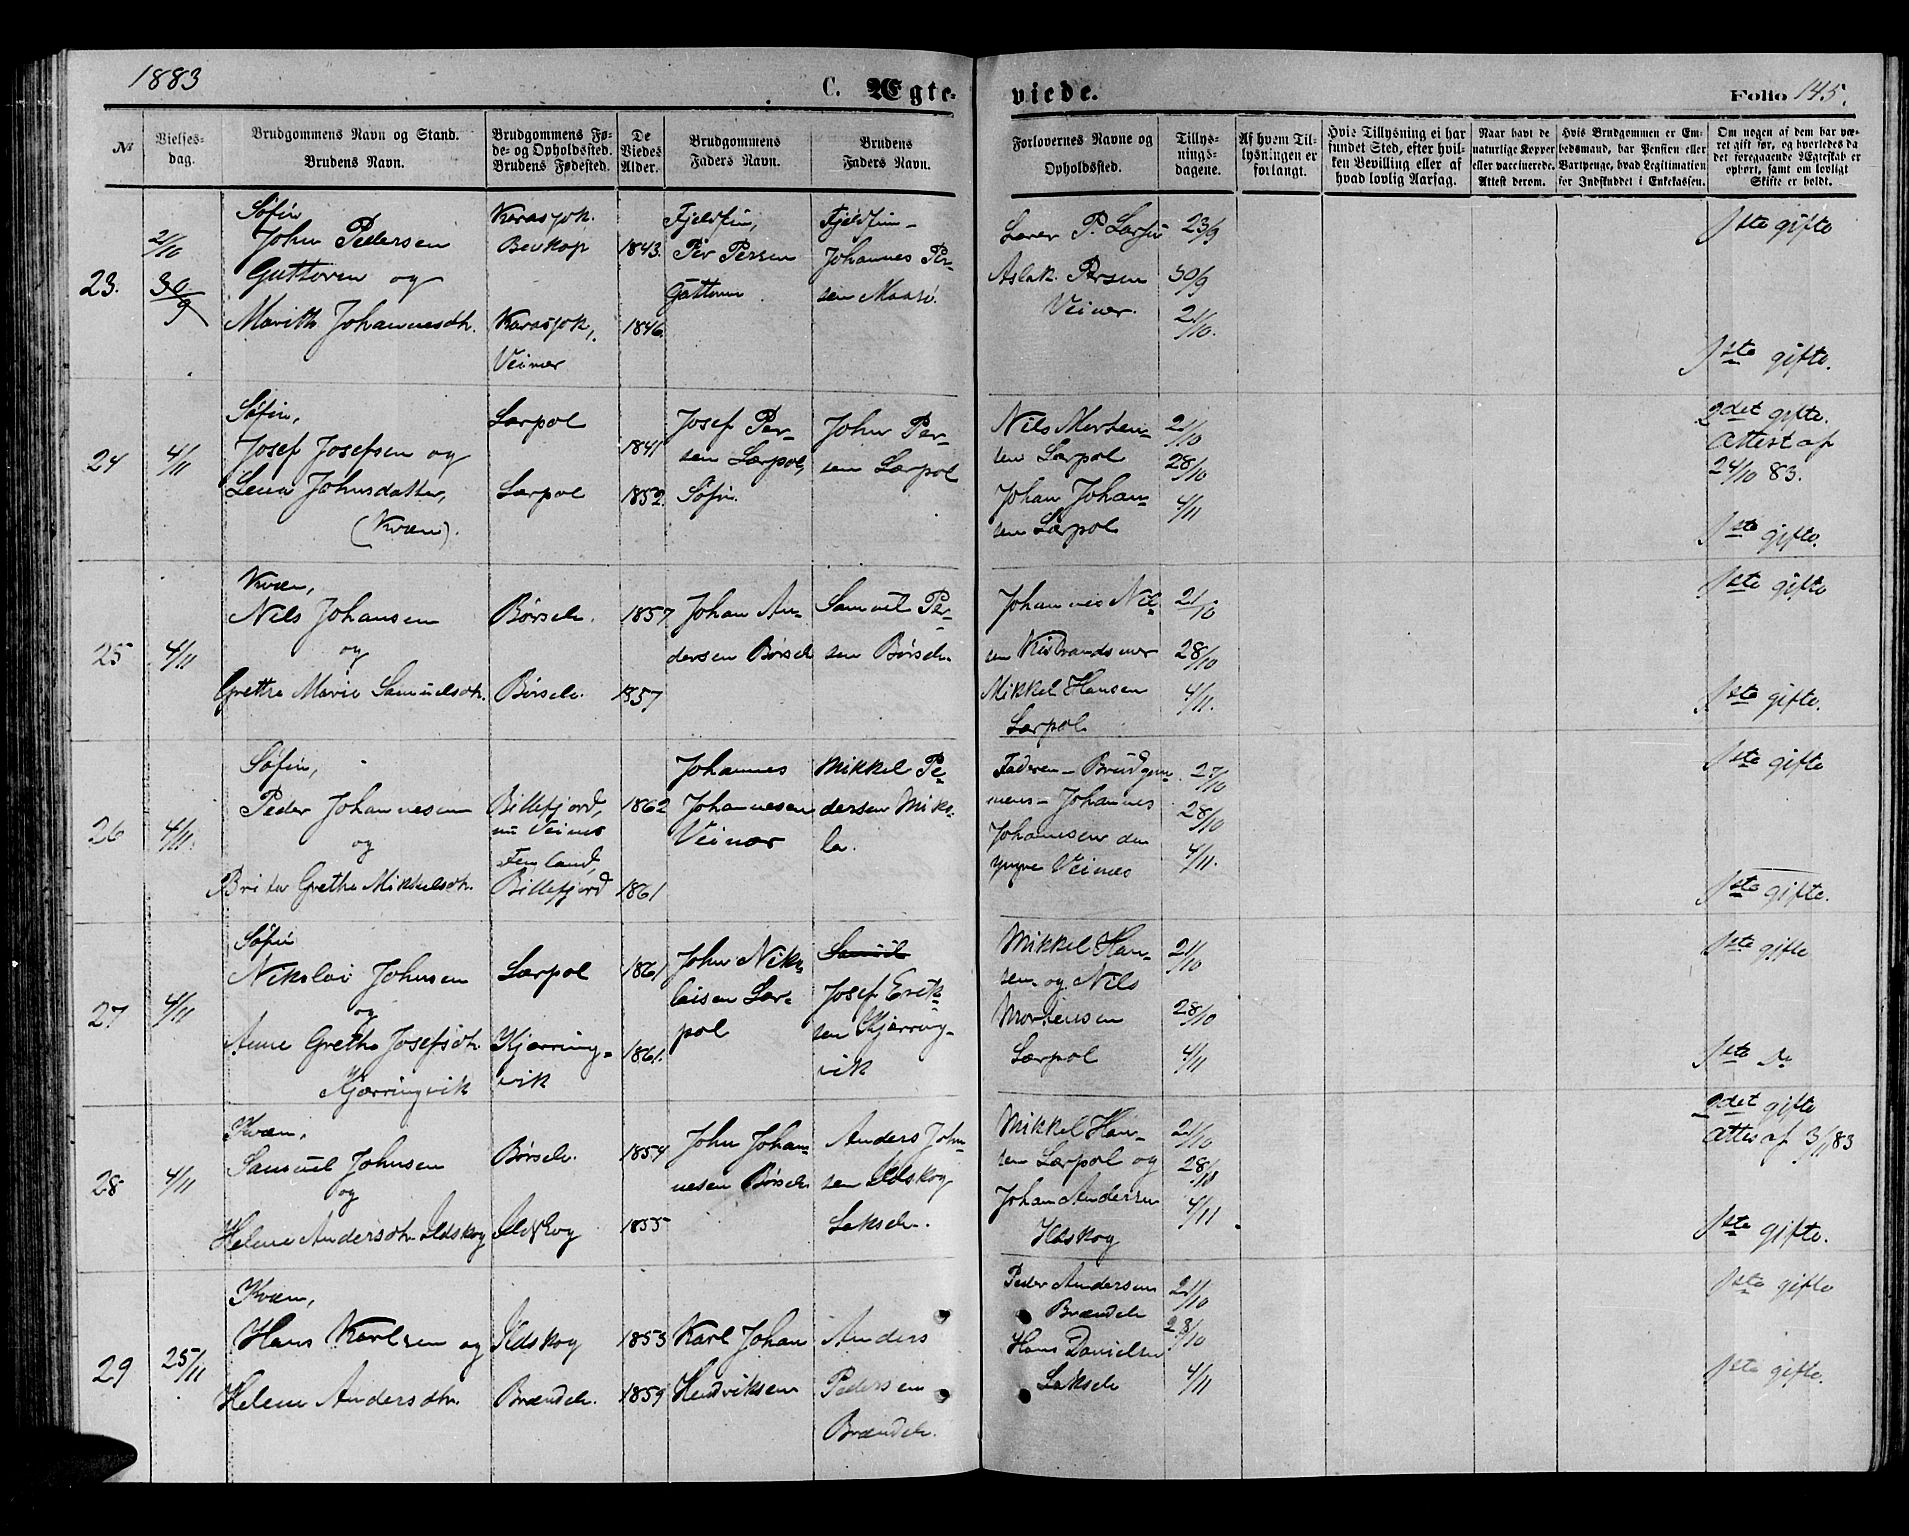 1883
C. Ægte-
viede.
Folio 145.
№
Vielses-
dag.
Brudgommens Navn og Stand.
Brudens Navn.
Brudgommens Fø-
de- og Opholdssted.
Brudens Fødested.
De
Viedes
Alder.
Brudgommens
Faders Navn.
Brudens
Faders Navn.
Forlovernes Navne og
Opholdssted.
Tillys-
nings-
dagene.
Af hvem Til-
lysningen er
forlangt.
Hvis Tillysning ei har
fundet Sted, efter hvil-
ken Bevilling eller af
hvad lovlig Aarsag.
Naar havt de
naturlige Kopper
eller vaccinerede.
Attest derom.
Hvis Brudgommen er Em-
bedsmand, har Pension eller
Vartpenge, hvad Legitimation
for Indskudet i Enkekassen.
Om nogen af dem har væ-
ret gift før, og hvorledes da
det foregaaende Ægteskab er
ophørt, samt om lovligt
Skifte er holdt.
23.
2/10
30/9
Søfin
John Pedersen
Guttorm og
Marith Johannesdtr.
Karasjok.
Bevkop
Karasjok,
Veines
1843.
1846.
Fjeldfin,
Per Persen
Guttorm
Fjeldfin-
Johannes Per-
sen Maasø.
Lærer P. Larsen
Aslak Persen
Veines.
23/9
30/9
2/10.
1ste gifte
1ste gifte.
24
4/11
Søfin,
Josef Josefsen og
Lena Johnsdatter,
(Kvæn).
Lærpol
Lærpol
1841
1852.
Josef Per-
sen Lærpol,
Søfin.
John Per-
sen Lærpol
Nils Morten-
sen Lærpol
Johan Johan-
sen Lærpol
21/10
28/10
4/11
2det gifte.
Attest af
24/10 83.
1ste gifte.
25
4/11
Kvæn,
Nils Johansen
og
Grethe Marie Samuelsdtr.
Børselv.
Børselv.
1857
1857
Johan An-
dersen Børselv
Samuel Per-
sen Børselv.
Johannes Nil-
sen Kistrandsnes
Mikkel Hansen
Lærpol.
21/10
28/10
4/11.
1ste gifte
1ste gifte.
26
4/11.
Søfin,
Peder Johannesen
og
Brita Grethe Mikkelsdtr.
Billefjord,
nu Veines
Finland,
Billefjord
1862
1861
Johannes
Johannesen
Veines
Mikkel Pe-
dersen Mike-
la.
Faderen - Brudgom-
mens - Johannes
Johannsen den
yngre Veines
27/10
28/10
4/11.
1ste gifte
1ste gifte.
27
4/11
Søfin
Nikolai Johnsen
og
Anne Grethe Josefsdtr.
Kjærringvik
Lærpol
Kjærring-
vik
1861
1861.
John Niko-
laisen Lær-
pol
Samuel
Josef Erik-
sen Kjærring-
vik
Mikkel Han-
sen og Nils
Mortensen
Lærpol
21/10
28/10
4/11
1ste gifte
1ste Do
28
4/11
Kvæn,
Samuel Johnsen
og
Helene Andersdtr. Ildskog
Børselv.
Ildskog
1854
1855
John Johan-
nesen Børselv
Anders John-
sen Ildskog
Lakselv.
Mikkel Han-
sen Lærpol og
Johan Andersen
Ildskog
21/10
28/10
4/11
2det gifte
Attes af 3/11 83
1ste gifte.
29
25/11
Kvæn,
Hans Karlsen og
Helene Andersdtr.
Ildskog
Brændelv.
1853
1859
Karl Johan
Hendriksen
Anders
Pedersen
Brændelv.
Peder Andersen
Brændelv
Hans Danielsen
Lakselv
21/10
28/10
4/11
1ste gifte
1ste gifte.